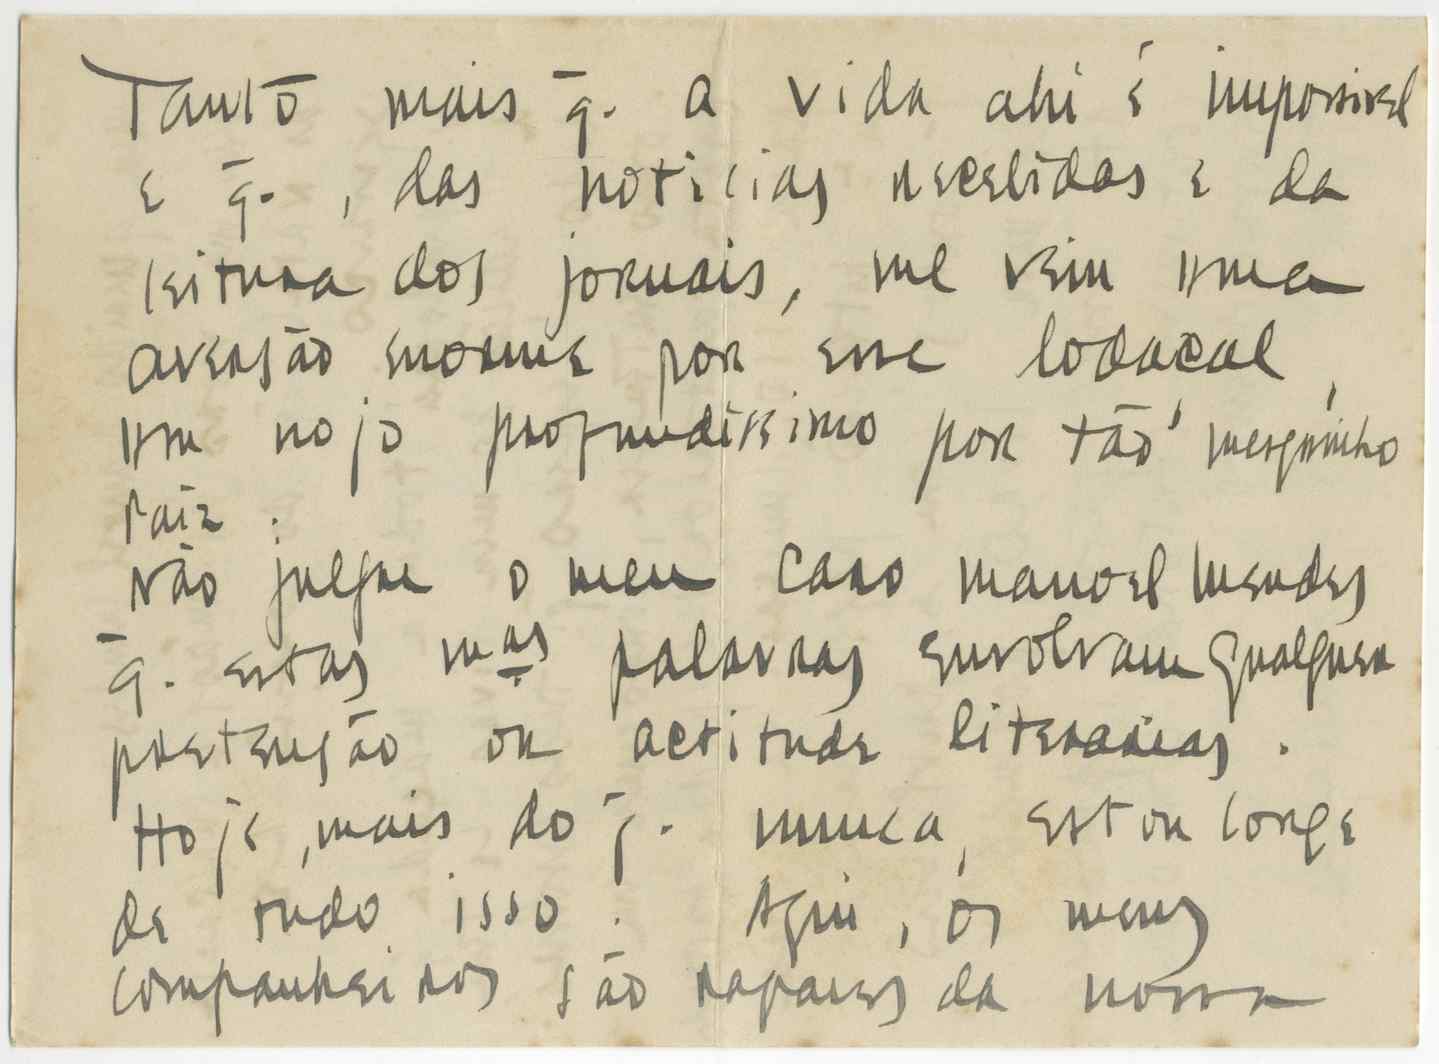 Tanto mais q̄. a vida ahi é impossivel
e q̄. , das noticias recebidas e da
leitura dos jornais, me vem uma
aversão enorme por esse lodaçal,
um nojo profundíssimo por tão mesquinho
País.
Não julgue o meu caro Manoel Mendes
q̄. estas mas palavras envolvam qualquer
pretensão ou actitude literarias.
Hoje, mais do q̄. nunca, estou longe
de tudo isso. Aqui, os meus
companheiros são rapazes da nossa